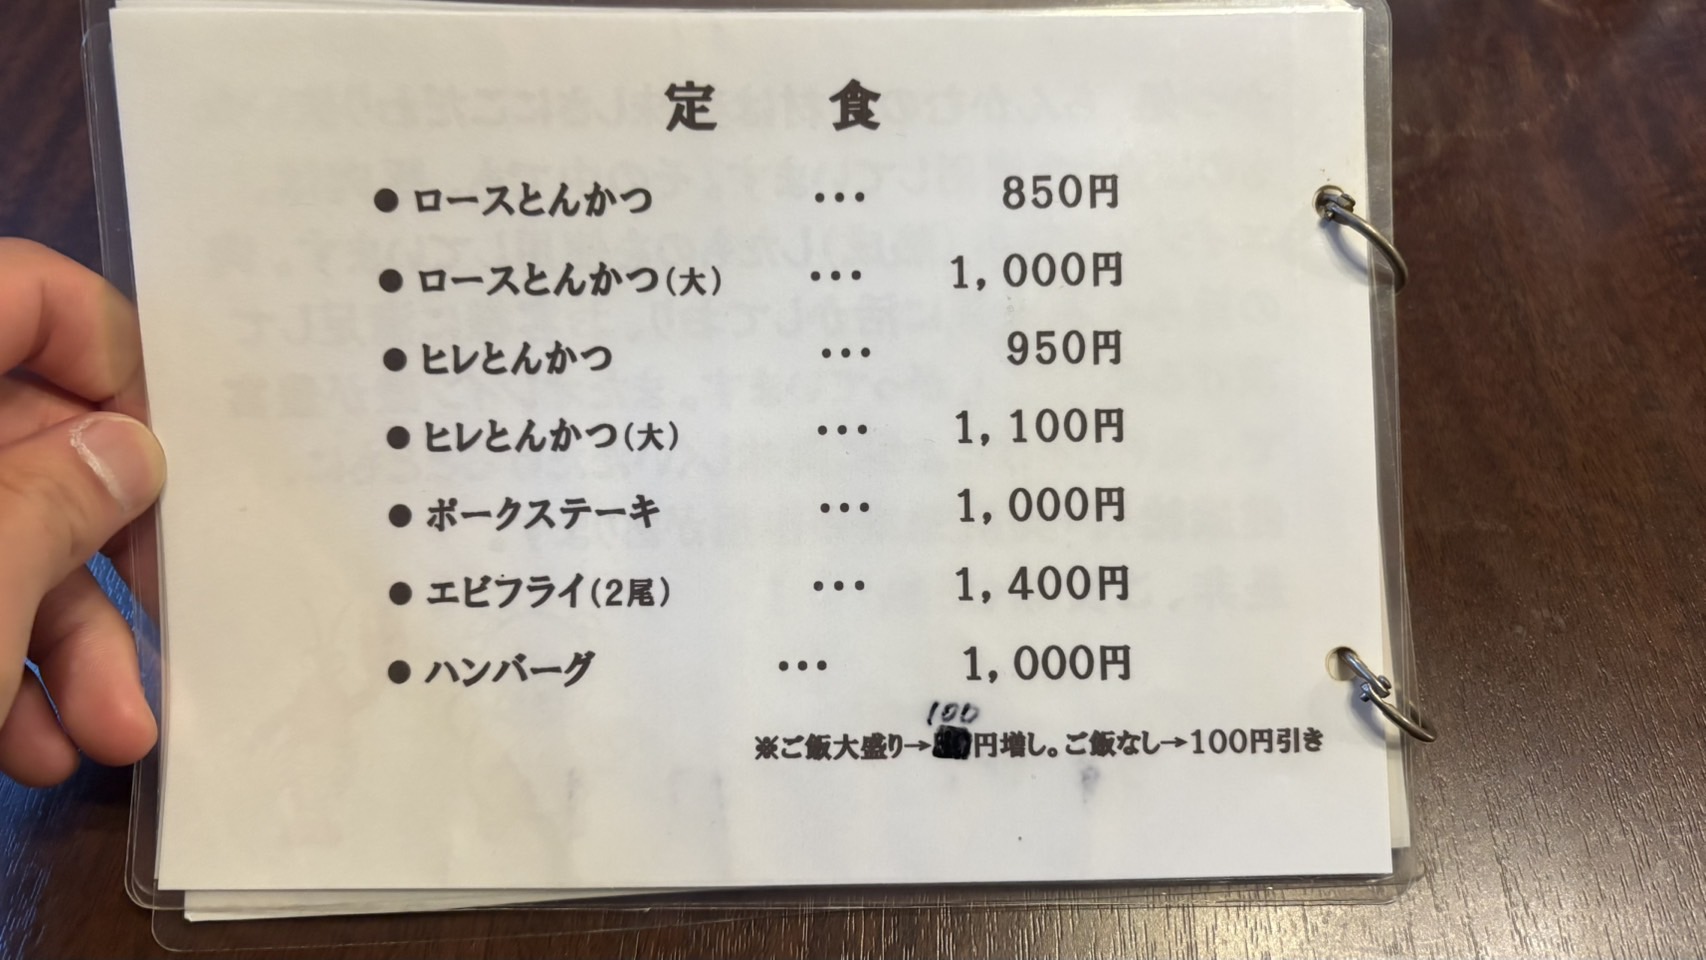 定 食
● ロースとんかつ ・・・ 850円
● ロースとんかつ(大) ・・・ 1,000円
● ヒレとんかつ ・・・ 950円
● ヒレとんかつ(大) ・・・ 1,100円
● ポークステーキ ・・・ 1,000円
● エビフライ(2尾) ・・・ 1,400円
● ハンバーグ ・・・ 1,000円
100
※ご飯大盛り→円増し。ご飯なし→100円引き